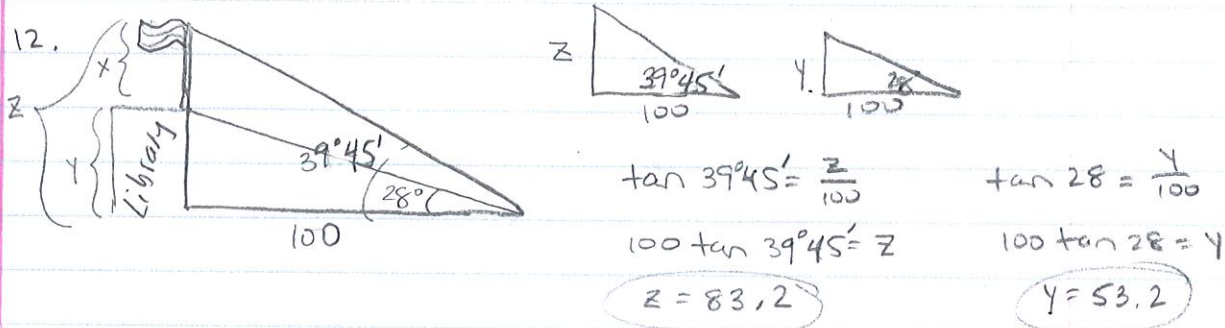 12.
X
Z
Y
Library
39°45'
28°
100
Z
39°45'
100
Y.
28
100
tan 39°45' = Z/100
100 tan 39°45' = Z
Z = 83.2
tan 28 = Y/100
100 tan 28 = Y
Y = 53.2